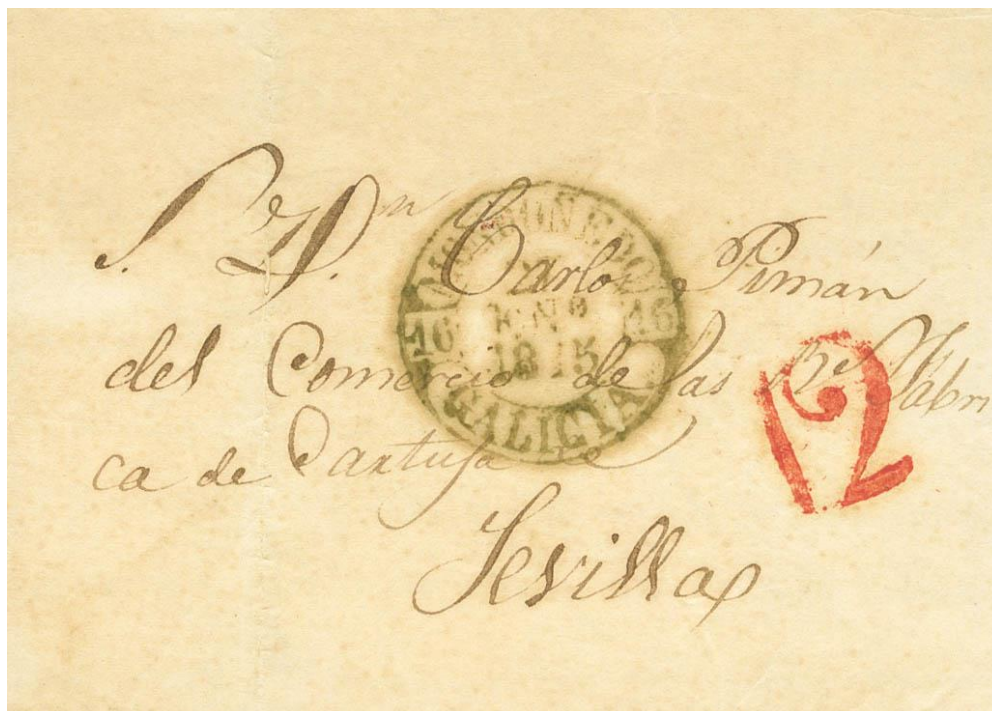 S.r D.n Carlos Pimán
del Comercio de las R.s Fábri
ca de Cartuja
Sevilla
MONDOÑEDO
16 16
1845
GALICIA
12